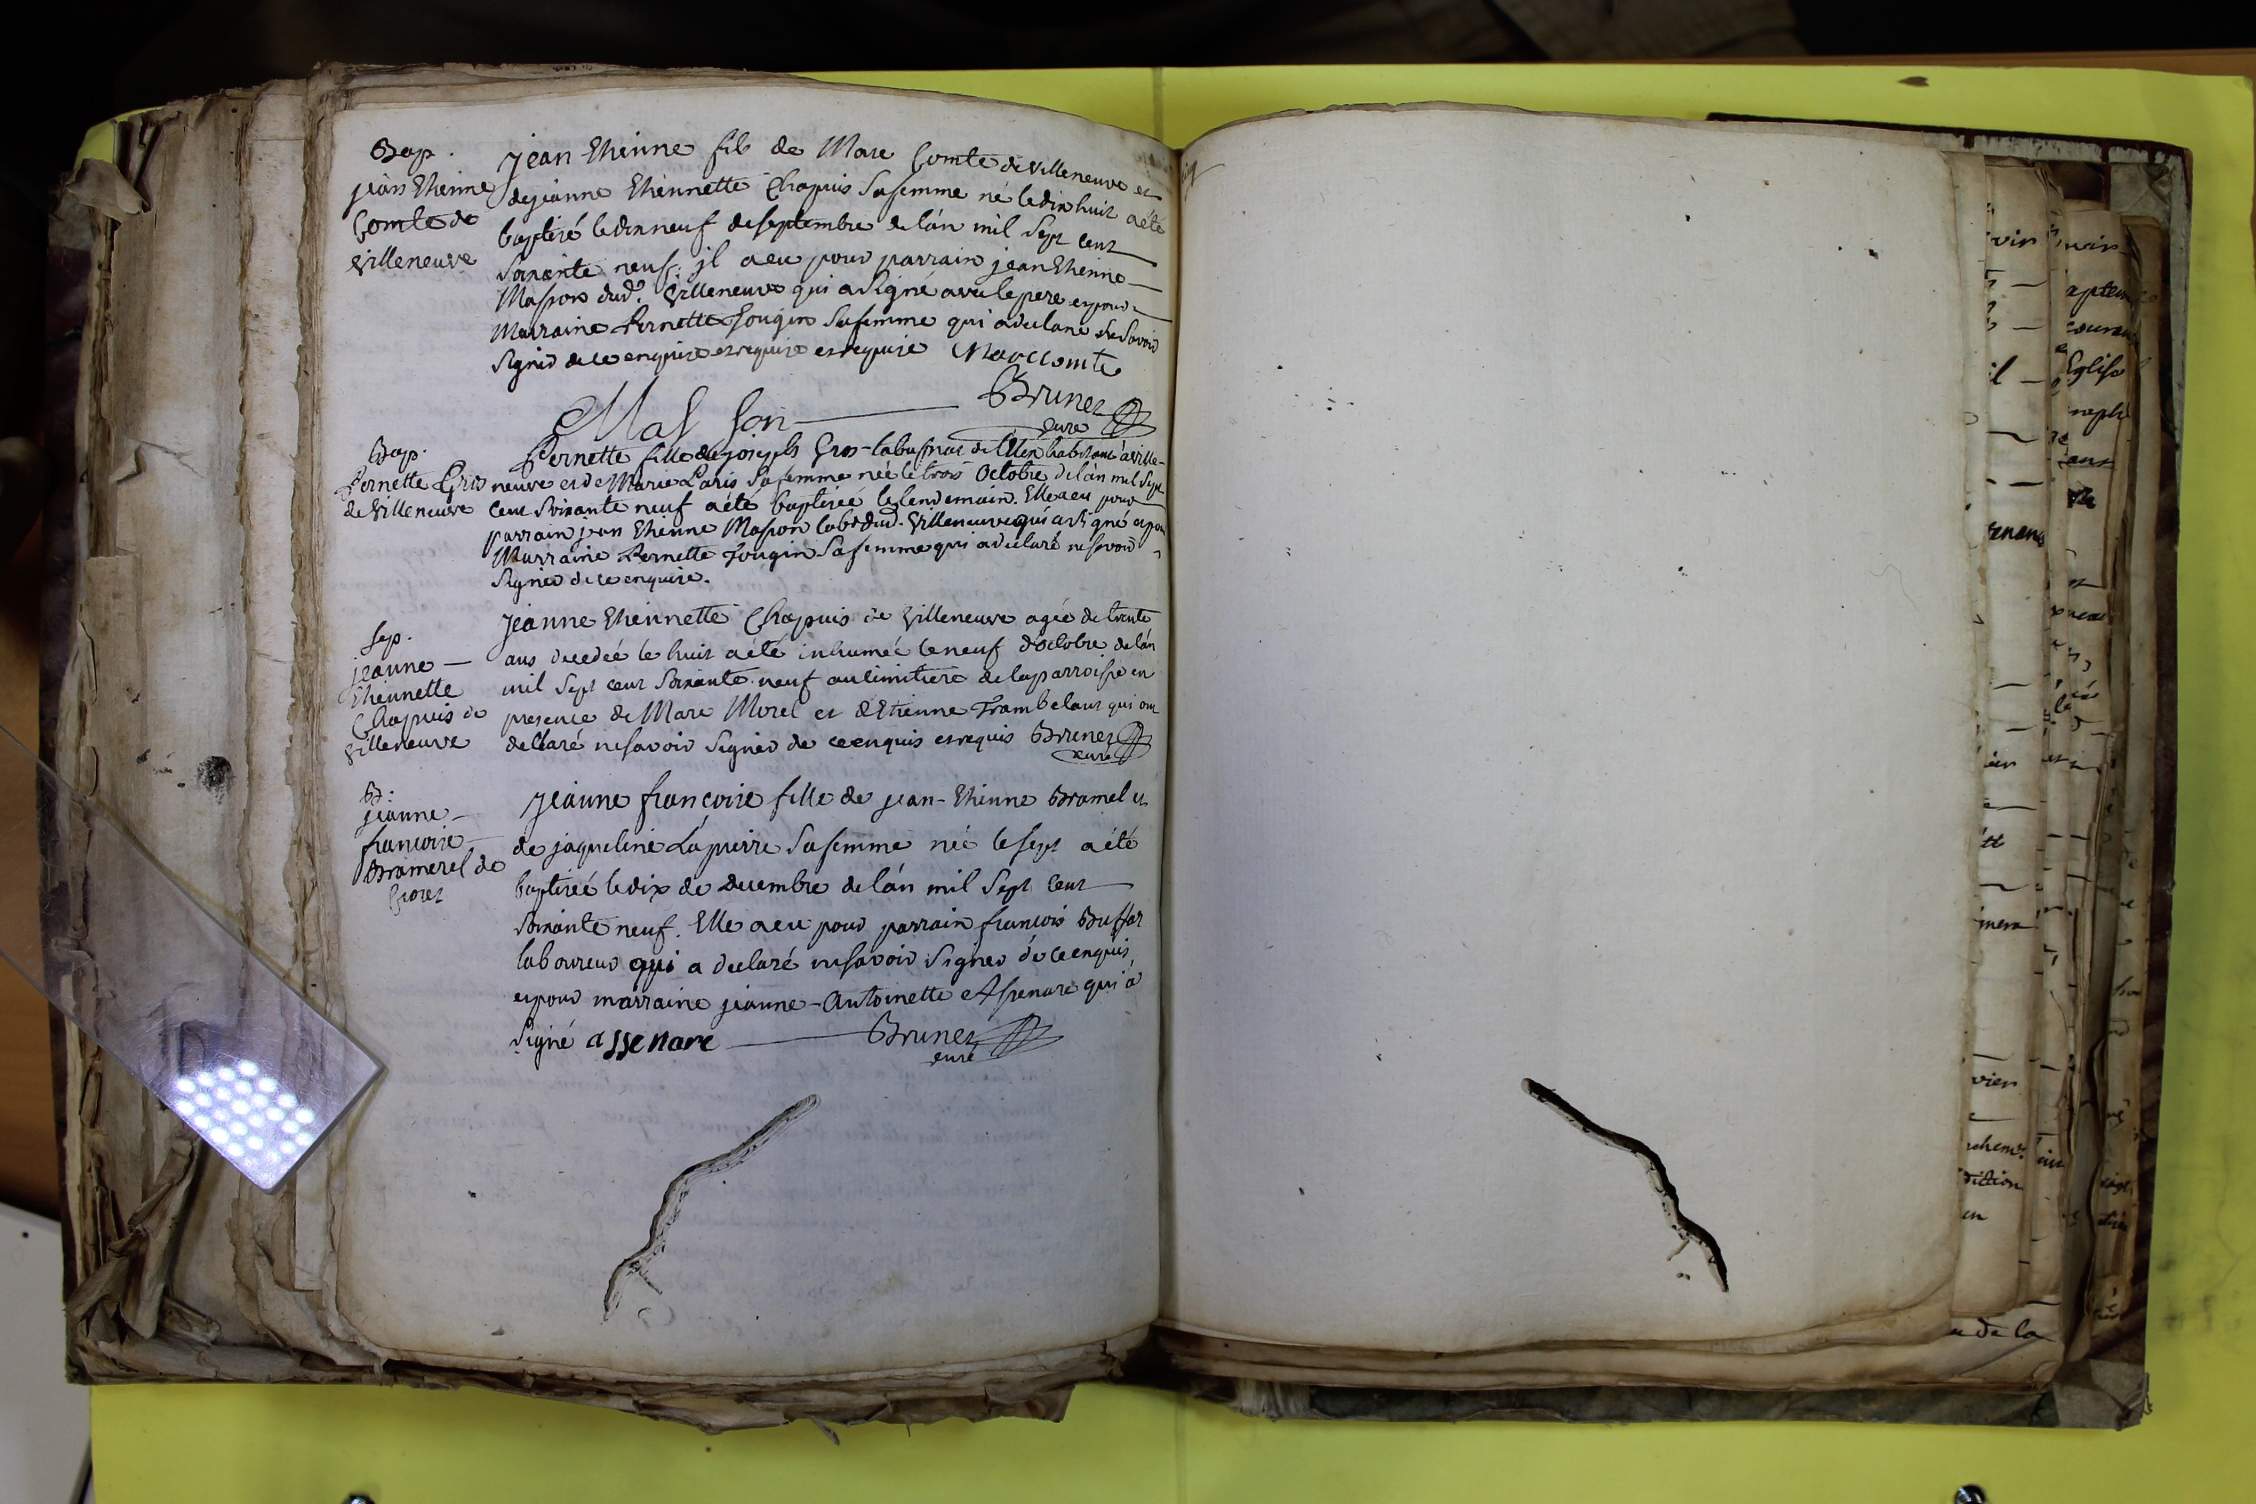 Bap.
jean Etienne
Comte de
villeneuve
jean Etienne fils de Marc Comte de villeneuve et
de jeanne Etiennette Chapuis sa femme né le dix huit a été
baptisé le dix neuf de septembre de l'an mil sept cent
soixante neuf. il a eu pour parrain jean Etienne
Masson dud. villeneuve qui a signé avec le pere et pour
marraine Pernette Fougin sa femme qui a declaré ne savoir
signer de ce enquise et requise et requise Marc Comte
Masson Brunet
curé
Bap.
Pernette Gros
de villeneuve
Pernette fille de joseph Gros habitant à ville-
neuve et de Marie Paris sa femme née le trois octobre de l'an mil sept
cent soixante neuf a été baptisée le lendemain. Elle a eu pour
parrain jean Etienne Masson lab. dud. villeneuve qui a signé et pour
marraine Pernette Fougin sa femme qui a declaré ne savoir
signer de ce enquise.
Sep.
jeanne
Etiennette
Chapuis de
villeneuve
jeanne Etiennette Chapuis de villeneuve agée de trente
ans decedée le huit a été inhumée le neuf d'octobre de l'an
mil sept cent soixante neuf au cimitiere de la parroisse en
presence de Marc Morel et d'Etienne Trambelant qui ont
declaré ne savoir signer de ce enquis et requis Brunet
curé
B.
jeanne
francoise
Bramerel de
jeanne francoise fille de jean-Etienne Bramel et
de jaqueline Lapierre sa femme née le sept a été
baptisée le dix de decembre de l'an mil sept cent
soixante neuf. Elle a eu pour parrain francois Buffat
laboureur qui a declaré ne savoir signer de ce enquis
et pour marraine jeanne-Antoinette Assenare qui a
signé assenare Brunet
curé